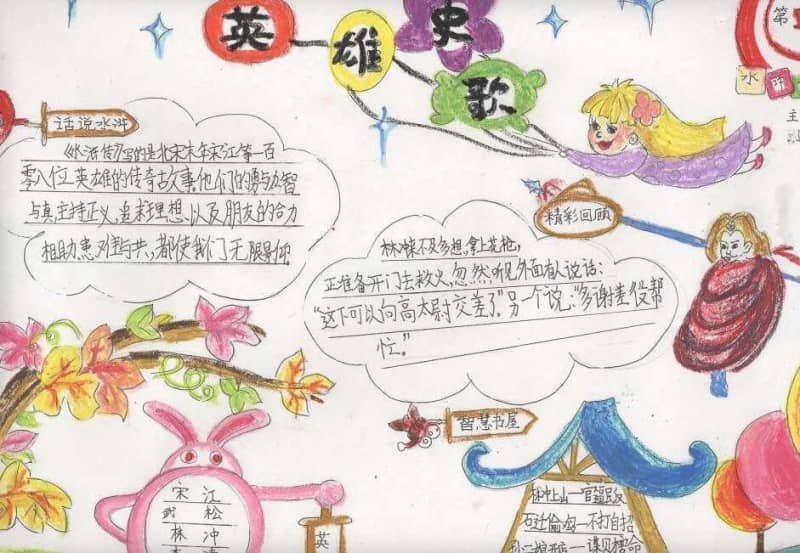 英雄史歌
第
水浒
主
话说水浒
《水浒传》写的是北宋末年宋江等一百
零八位英雄的传奇故事,他们的勇敢智
与真,主持正义,追求理想,以及朋友的合力
相助,患难与共,都使我们无限景仰
精彩回顾
林冲来不及多想,拿上花枪,
正准备开门去救火,忽然听见外面有人说话:
“这下可以向高太尉交差了。”另一个说:“多谢差役帮
忙。”
智慧书屋
宋江
武松
林冲
英
林冲上山—官逼民反
石迁偷匆—不打自招